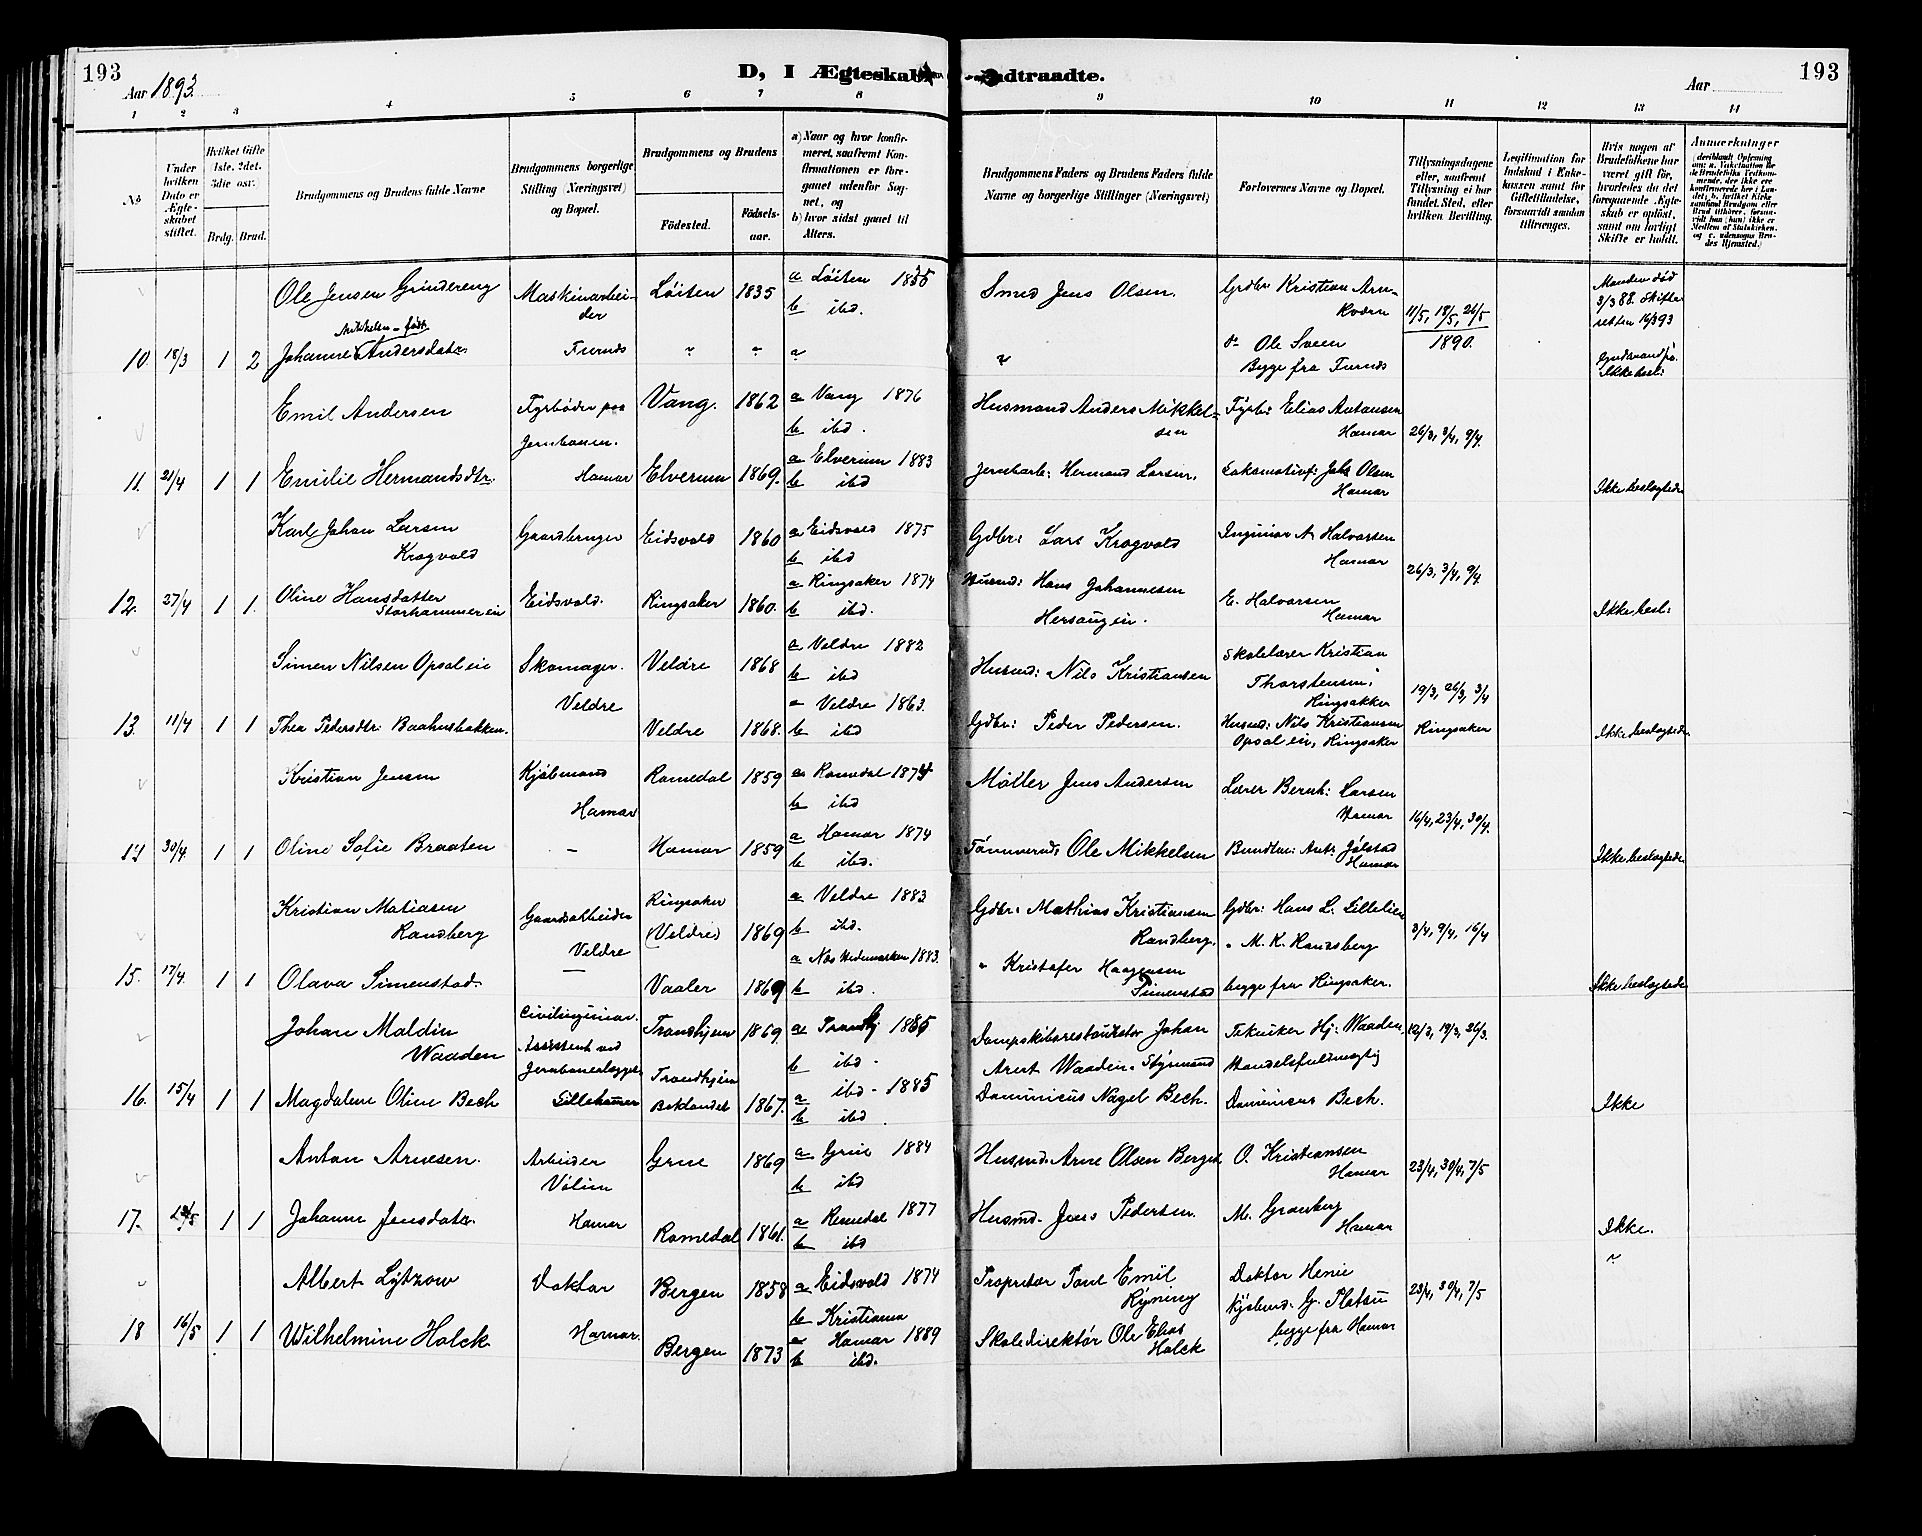 193
D, I Ægteskab Indtraadte.
193
Aar 1893.
Aar
1 2 3 4 5 6 7 8 9 10 11 12 13 14
No
Under hvilken Dato er Ægteskabet stiftet.
Hvilket Gifte 1ste. 2det. 3die osv.
Brdg. Brud.
Brudgommens og Brudens fulde Navne
Brudgommens borgerlige Stilling (Næringsvei) og Bopæl.
Brudgommens og Brudens
Födested.
Födselsaar.
a) Naar og hvor konfirmeret, saafremt Konfirmationen er foregaaet udenfor Sognet, og
b) hvor sidst gaaet til Alters.
Brudgommens Faders og Brudens Faders fulde Navne og borgerlige Stillinger (Næringsvei)
Forlovernes Navne og Bopæl.
Tillysningsdagene eller, saafremt Tillysning ei har fundet Sted, efter hvilken Bevilling.
Legitimation for Indskud i Enkekassen samt for Giftetilladelse, forsaavidt saadan tiltrænges.
Hvis nogen af Brudefolkene har været gift før, hvorledes da det foregaaende Ægteskab er opløst, samt om lovligt Skifte er holdt.
Anmærkninger
Ole Jensen Grindereng Maskinarbeider Löiten 1835 a Löiten 1855 Smed Jens Olsen. Grdbr Kristian Arnkværn 11/5, 18/5, 26/5 Manden død 3/3 88. Skifteretten 16/3 93
b ibd.
10. 18/3 1 2 Johanne Andersdatr. Furnes " " " " " Ole Sveen 1890.
Begge fra Furnes Ikke besl:
Emil Andersen Fyrbøder paa Jernbanen. Vang. 1862 a Vang 1876 Husmand Anders Mikkelsen Fyrb: Elias Antonsen Hamar 26/3, 3/4, 9/4.
b ibd.
11. 21/4 1 1 Emilie Hermandsdtr. Hamar Elverum 1869. a Elverum 1883 Jernbarb: Hermand Larsen. Lokomotivf: Joh Olsen Hamar Ikke beslægtede
b ibd
Karl Johan Larsen Krogvold Gaardbruger Eidsvold 1860 a Eidsvold 1875 Gdbr: Lars Krogvold Ingeniør A Halvorsen Hamar 26/3, 3/4, 9/4.
b ibd
12. 27/4 1 1. Oline Hansdatter Storhammereie Eidsvold. Ringsaker 1860. a Ringsaker 1874 Husmd: Hans Johannesen Hersougeie. E. Halvorsen Hamar Ikke besl:
b ibd.
Simen Nilsen Opsaleie Skomager. Veldre Veldre 1868 a Veldre 1882 Husmd: Nils Kristiansen Skolelærer Kristian Thorstensen i Ringsakker 19/3, 26/3, 3/4
b ibd
13. 11/4 1 1 Thea Pedersdtr: Baahusbakken. Veldre 1868. a Veldre 1863. Gdbr: Peder Pedersen. Husmd: Nils Kristiansen Opsaleie, Ringsaker Ringsaker Ikke beslægtede
b ibd
Kristian Jensen Kjøbmand Hamar Romedal 1859 a Romedal 1874 Møller Jens Andersen Lærer Bernh: Larsen Hamar 16/4, 23/4, 30/4.
b ibd
14 30/4. 1 1 Oline Sofie Braaten – Hamar 1859 a Hamar 1874 Tømmermd: Ole Mikkelsen Ant: Jølstad Hamar Ikke beslægtede
b ibd.
Kristian Matiasen Randberg Gaardarbeider Veldre Ringsaker (Veldre) 1869 a Veldre 1883 Gdbr: Mathias Kristiansen Randberg. Gdbr: Hans L. Lillelien 3/4, 9/4, 16/4
b ibd. " M. K. Randsberg
15. 17/4. 1 1 Olava Simenstad. – Vaaler 1869 a Næs Hedemarken 1883. " Kristofer Haagensen Simenstad begge fra Ringsaker. Ikke beslægtede
b ibd.
Johan Maldin Waaden Civilingeniør. Assistent ved Jernbaneanlægget Trondhjem 1869. a Trondhj 1885 Dampskibsrestauratør Johan Arnt Waaden. Tekniker Hj: Waaden. 12/3, 19/3, 26/3.
b ibd. Styrmand Handelsfuldmægtig
16. 15/4 1 1 Magdalene Oline Bech Lillehamer Trondhjem Baklandet 1867. a ibd 1885 Dominicus Nagel Bech. Dominicus Bech. Ikke
b ibd.
Anton Arnesen. Arbeider Grue 1869 a Grue 1884 Husmd. Arne Olsen Berget O. Kristiansen Hamar 23/4, 30/4, 7/5
b ibd
17. 1 1 Johanne Jensdatr. Hamar Romedal 1861. a Romedal 1877 Husmd. Jens Pedersen. M. Granberg Hamar Ikke.
b ibd
Albert Lytzow Doktor Bergen 1858 a Eidsvold 1874 Proprietær Poul Emil Rynning Doktor Henie 23/4, 30/4, 7/5 "
b Kristiania G. Platou
18 16/5 1 1 Wilhelmine Holck Hamar. Bergen 1873 a Hamar 1889 Skoledirektør Ole Elias Holck begge fra Hamar
b ibd.